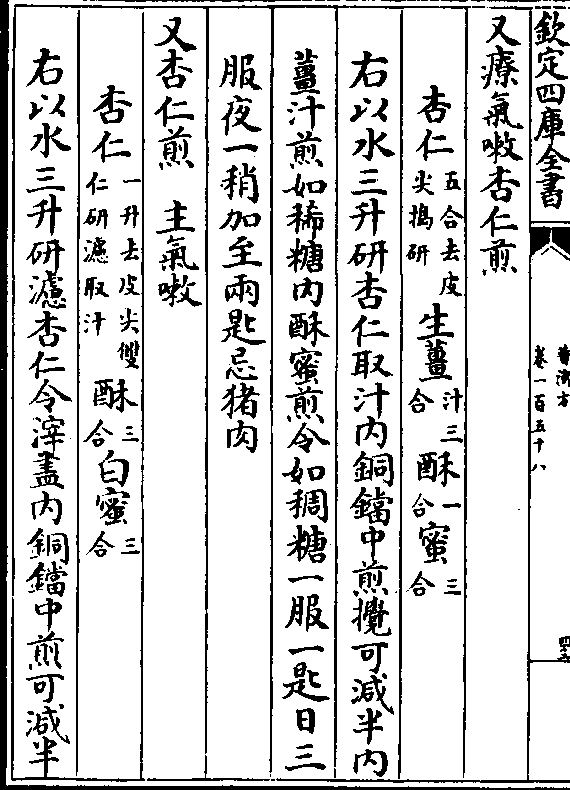 欽定四庫全書
普濟方
卷一百五十八
又療氣嗽杏仁煎
杏仁五合去皮尖搗研 生薑汁三合 酥一合 蜜三合
右以水三升研杏仁取汁内銅鐺中煎攪可減半内
薑汁煎如稀糖内酥蜜煎令如稠糖一服一匙日三
服夜一稍加至兩匙忌猪肉
又杏仁煎 主氣嗽
杏仁一升去皮尖雙仁研濾取汁 酥三合 白蜜三合
右以水三升研濾杏仁令滓盡内銅鐺中煎可減半